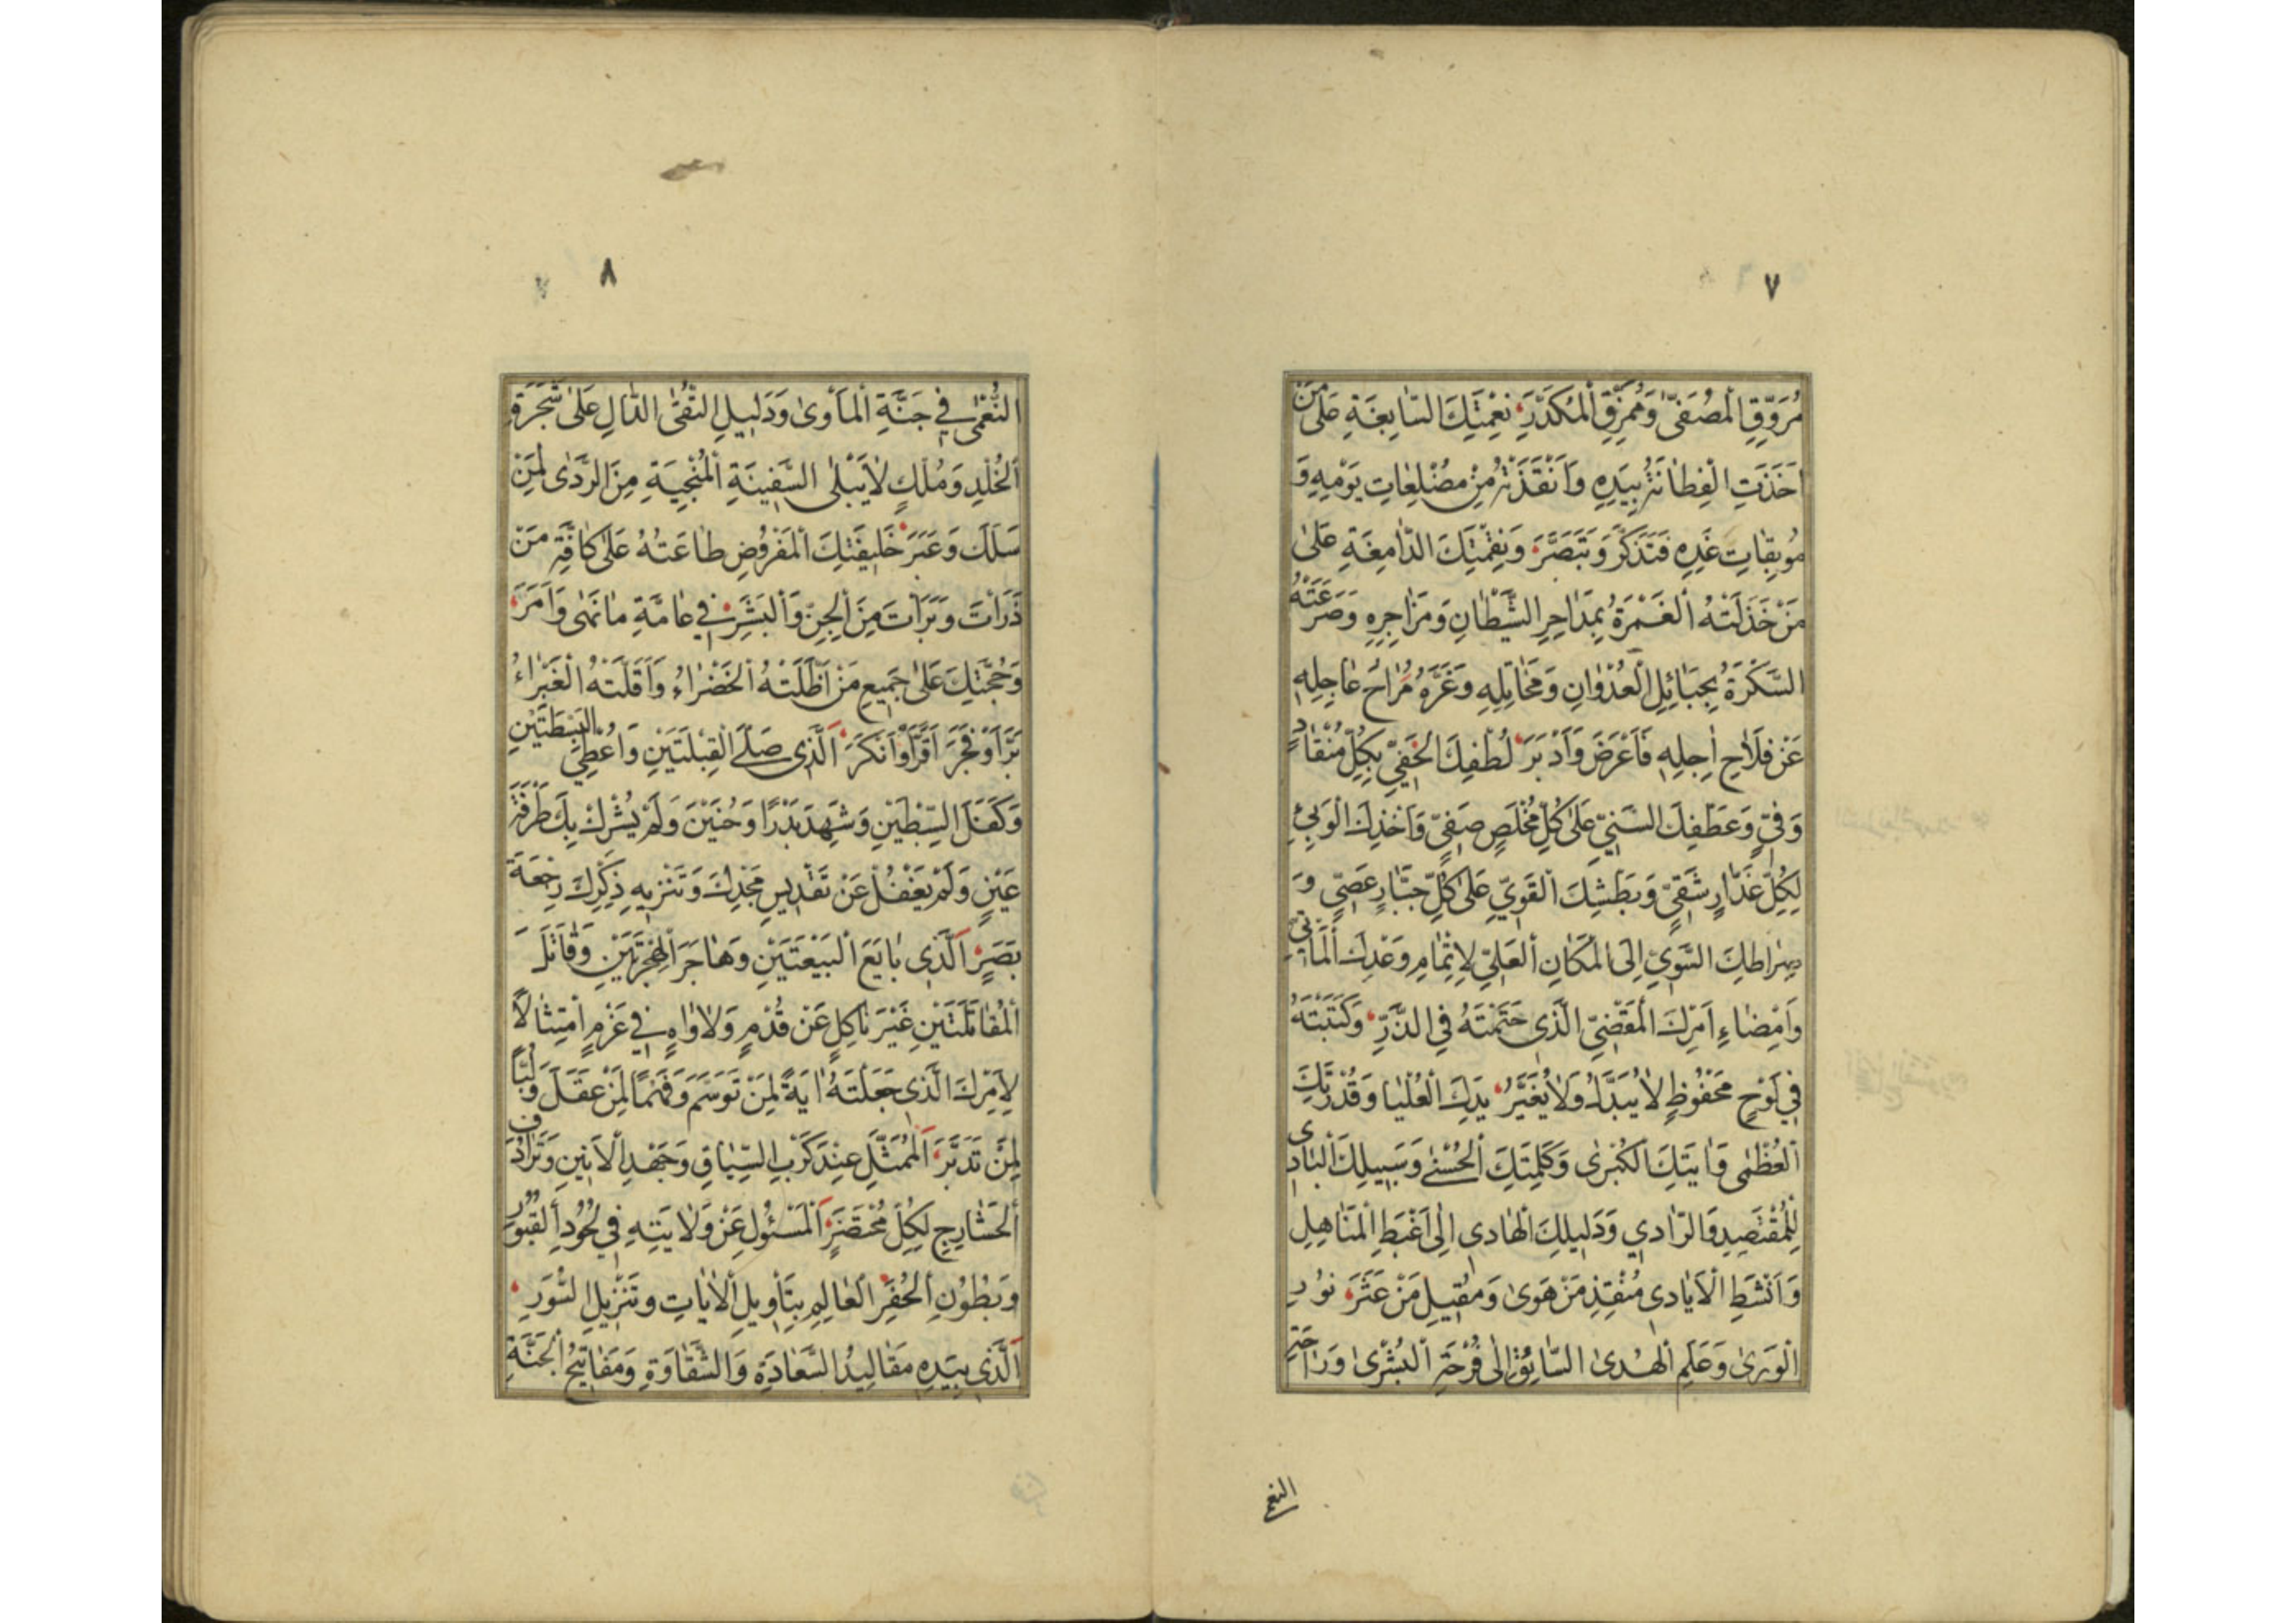 ٧
مُرَوِّقِ الْمُصَفّىٰ وَمُمَزِّقِ الْمُكَدَّرِ نِعْمَتِكَ السّابِغَةِ عَلىٰ مَنْ
اَخَذَتِ الْفِطانَةُ بِيَدِهِ وَاَنْقَذَتْهُ مِنْ مُضْلِعاتِ يَوْمِهِ وَ
مُوبِقاتِ غَدِهِ فَتَذَكَّرَ وَتَبَصَّرَ وَنِقْمَتِكَ الدّامِغَةِ عَلىٰ
مَنْ خَذَلَتْهُ الْغَمْرَةُ بِمَداحِرِ الشَّيْطانِ وَمَزاجِرِهِ وَصَرَعَتْهُ
السَّكْرَةُ بِحَبائِلِ الْعُدْوانِ وَمَخاتِلِهِ وَغَرَّهُ مُراحُ عاجِلِهِ
عَنْ فَلاحِ اٰجِلِهِ فَاَعْرَضَ وَاَدْبَرَ لُطْفِكَ الْخَفِيِّ بِكُلِّ مُنْقادٍ
وَفِيٍّ وَعَطْفِكَ السَّنِيِّ عَلىٰ كُلِّ مُخْلَصٍ صَفِيٍّ وَاَخْذِكَ الْوَبِئِ
لِكُلِّ غَدّارٍ شَقِيٍّ وَبَطْشِكَ الْقَوِيِّ عَلىٰ كُلِّ جَبّارٍ عَصِيٍّ وَ
صِراطِكَ السَّوِيِّ اِلَى الْمَكانِ الْعَلِيِّ لِاِتْمامِ وَعْدِكَ الْمَأْتِيِّ
وَاِمْضاءِ اَمْرِكَ الْمَقْضِيِّ الَّذى حَتَمْتَهُ فِي الذَّرِّ وَكَتَبْتَهُ
فِي لَوْحٍ مَحْفُوظٍ لا يُبَدَّلُ وَلا يُغَيَّرُ يَدِكَ الْعُلْيا وَقُدْرَتِكَ
الْعُظْمىٰ وَاٰيَتِكَ الْكُبْرىٰ وَكَلِمَتِكَ الْحُسْنىٰ وَسَبِيلِكَ الْبادى
لِلْمُقْتَصِدِ وَالرّادى وَدَلِيلِكَ الْهادى اِلىٰ اَغْبَطِ الْمَناهِلِ
وَاَنْشَطِ الْاَيادى مُنْقِذِ مَنْ هَوىٰ وَمُقِيلِ مَنْ عَثَرَ نُورِ
الْوَرىٰ وَعَلَمِ الْهُدىٰ السّائِقِ اِلىٰ فُرْحَةِ الْبُشْرىٰ وَراحَةِ
النعم
٨
النُّعْمىٰ فِي جَنَّةِ الْمَأْوىٰ وَدَلِيلِ التُّقىٰ الدّالِ عَلىٰ شَجَرَةِ
الْخُلْدِ وَمُلْكٍ لا يَبْلىٰ السَّفِينَةِ الْمُنْجِيَةِ مِنَ الرَّدىٰ لِمَنْ
سَلَكَ وَعَبَرَ خَلِيفَتِكَ الْمَفْرُوضِ طاعَتُهُ عَلىٰ كافَّةِ مَنْ
ذَرَأْتَ وَبَرَأْتَ مِنَ الْجِنِّ وَالْبَشَرِ فِي عامَّةِ ما نَهىٰ وَاَمَرَ
وَحُجَّتِكَ عَلىٰ جَمِيعِ مَنْ اَظَلَّتْهُ الْخَضْراءُ وَاَقَلَّتْهُ الْغَبْراءُ
بَرَّ اَوْ فَجَرَ اَقَرَّ اَوْ اَنْكَرَ اَلَّذى صَلَّى الْقِبْلَتَيْنِ وَاُعْطِيَ الْبَسْطَتَيْنِ
وَكَفَلَ السِّبْطَيْنِ وَشَهِدَ بَدْرًا وَحُنَيْنَ وَلَمْ يُشْرِكْ بِكَ طَرْفَةَ
عَيْنٍ وَلَمْ يَغْفُلْ عَنْ تَقْدِيسِ مَجْدِكَ وَتَنْزِيهِ ذِكْرِكَ رَجْعَةَ
بَصَرٍ اَلَّذى بايَعَ الْبَيْعَتَيْنِ وَهاجَرَ الْهِجْرَتَيْنِ وَقاتَلَ
الْمُقاتَلَتَيْنِ غَيْرَ ناكِلٍ عَنْ قُدْمٍ وَلا واهٍ فِي عَزْمٍ اِمْتِثالًا
لِاَمْرِكَ الَّذى جَعَلْتَهُ اٰيَةً لِمَنْ تَوَسَّمَ وَفَهْمًا لِمَنْ عَقَلَ وَلُبًّا
لِمَنْ تَدَبَّرَ اَلْمُمَثَّلِ عِنْدَ كَرْبِ السِّياقِ وَجَهْدِ الْاَنِينِ وَتَرادُفِ
الْحَشارِجِ لِكُلِّ مُحْتَضَرٍ اَلْمَسْئُولِ عَنْ وَلايَتِهِ فِي لُحُودِ الْقُبُورِ
وَبُطُونِ الْحُفَرِ الْعالِمِ بِتَأْوِيلِ الْاٰياتِ وَتَنْزِيلِ السُّوَرِ
اَلَّذى بِيَدِهِ مَقالِيدُ السَّعادَةِ وَالشَّقاوَةِ وَمَفاتِيحُ الْجَنَّةِ